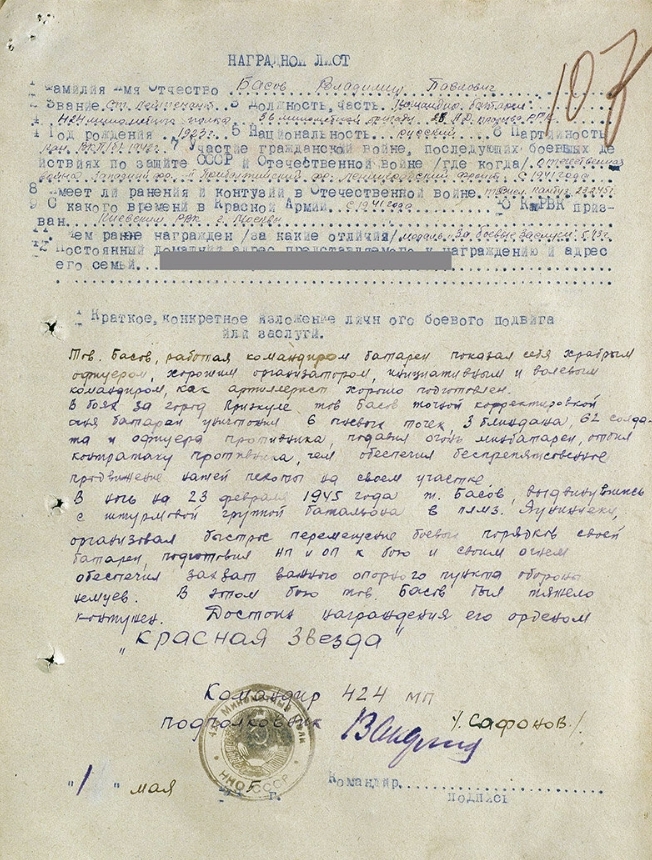 НАГРАДНОЙ ЛИСТ
103
1 Фамилия Имя Отчество Басов Владимир Павлович
2 Звание Ст. лейтенант 3 Должность, часть. Командир батареи
424 минометного полка 36 минометной бригады
4 Год рождения 1923г. 5 Национальность русский 6 Партийность
7 Участие гражданской войне, последующих боевых де
йствиях по защите СССР и Отечественной войне /где когда/ Отечественная
война Западный фр. II Прибалтийский фр. Ленинградский фронт с 1941 года
8 Имеет ли ранения и контузии в Отечественной войне.
9 С какого времени в Красной Армии с 1941 года 10 Ка РВК приз-
ван. Киевским РВК г. Москвы
11 Чем ранее награжден /за какие отличия/ медаль "За боевые заслуги"
12 Постоянный Домашний адрес представляемого к награждению и адрес
его семьи
1 Краткое, конкретное изложение личн ого боевого подвига
или заслуги.
Тов. Басов, работая командиром батареи показал себя храбрым
офицером, хорошим организатором, инициативным и волевым
командиром, как артиллерист хорошо подготовлен.
В боях за город Приекуле тов Басов точной корректировкой
огня батареи уничтожил 6 огневых точек, 3 блиндажа, 62 солда-
та и офицера противника, подавил огонь минбатареи, отбил
контратаку противника, чем обеспечил беспрепятственное
продвижение нашей пехоты на своем участке
В ночь на 23 февраля 1945 года т. Басов, выдвинувшись
с штурмовой группой батальона в
организовал быстрое перемещение боевых порядков своей
батареи, подготовил НП и ОП к бою и своим огнем
обеспечил захват важного опорного пункта обороны
немцев. В этом бою тов. Басов был тяжело
контужен. Достоин награждения его орденом
"Красная Звезда"
Командир 424 мп
подполковник /. Сафонов./
Минометный Полк
НКО СССР
"1" мая 5 г.
Командир
подпись